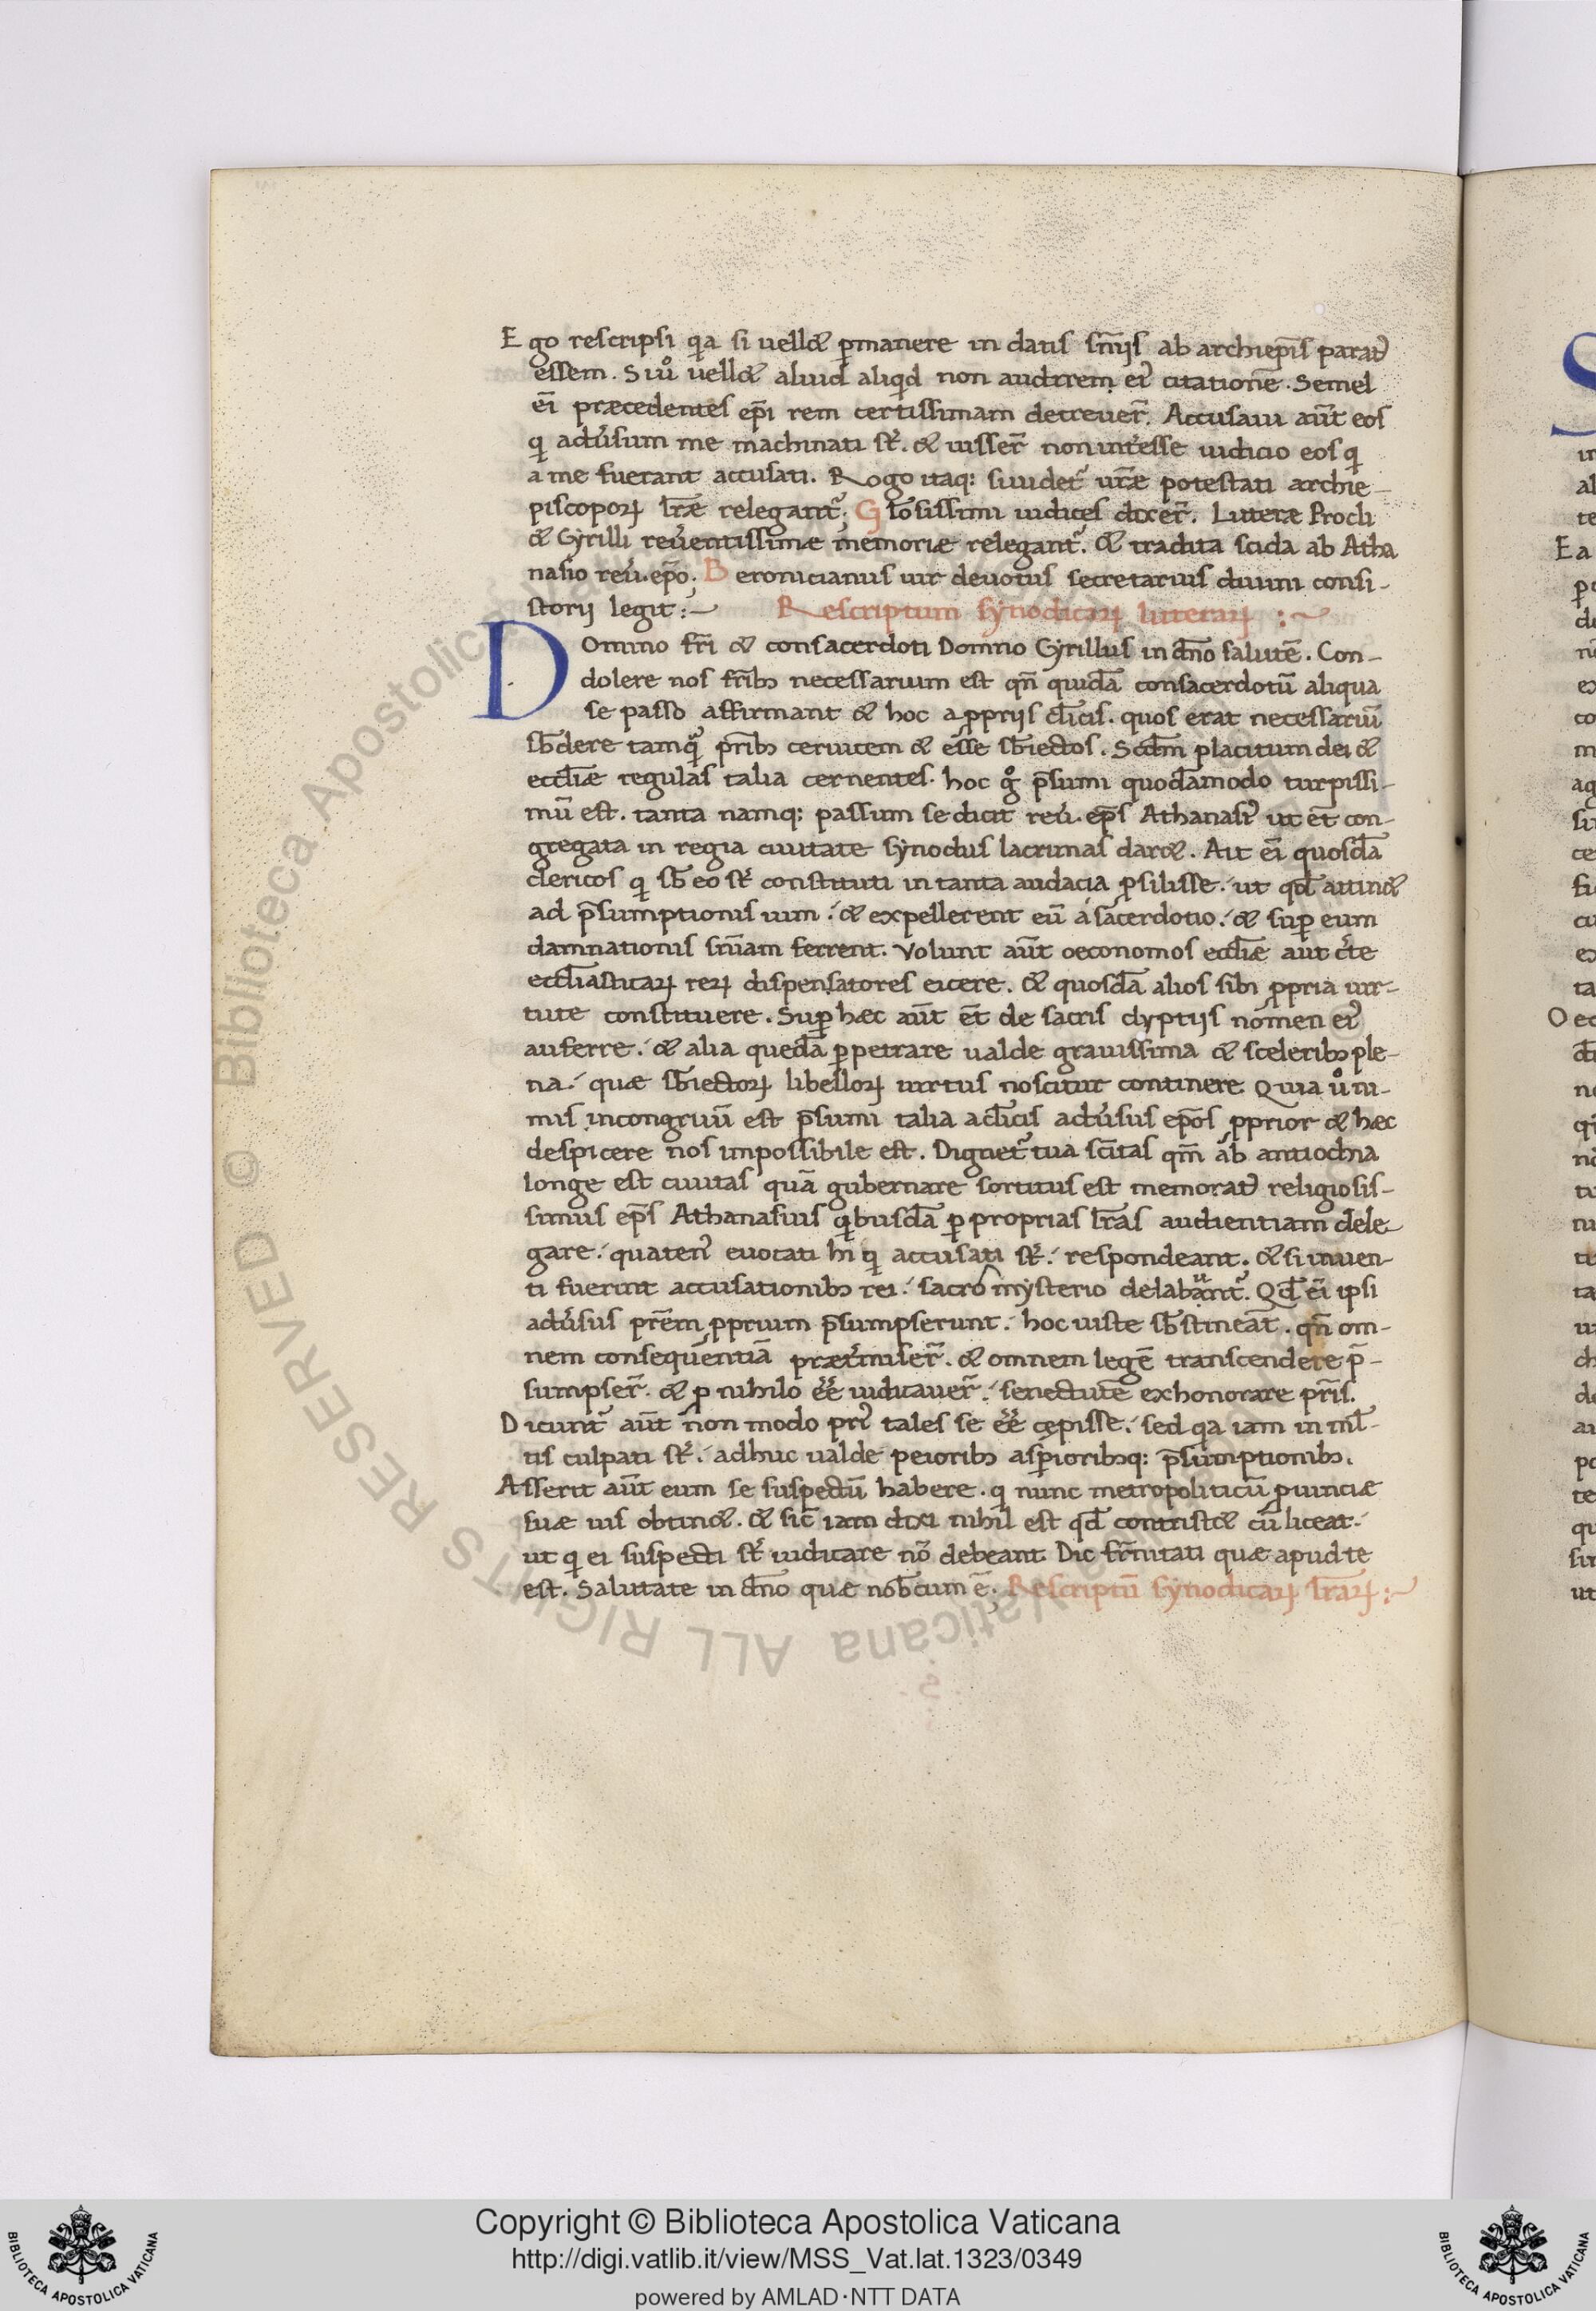 Ego rescripsi qia si uellet p̱manere in datis sñijs ab archiep̄is parat᾽
essem. Si u᷎o uellet aliud aliqid non audirem ei᾽ citationē. Semel
ei᷎ præcedentes ep̄i rem certissimam decreuer̄. Accusaui aūt eos
qi adu᾽sum me machinati st᾽. et iusser̄ non int᾽esse iudicio eos qi
a me fuerant accusati. Rogo itaq: si uidet᾽ ur̄æ potestati archie-
piscoporꝝ lr̄æ relegant᾽. Glo᷎sissimi iudices dixer̄. Litteræ Procli
et Cyrilli reu᾽entissimæ memoriæ relegant᾽. et tradita scida ab Atha
nasio reu᾽. ep̄o. Beronicianus uir deuotus secretarius diuini consi-
storij legit:~ Rescriptum synodicaꝝ litteraꝝ :~
Domino fr̄i et consacerdoti Domno Cyrillus in dn̄o salutē. Con-
dolere nos fr̄ibꝫ necessarium est qn̄ quidā consacerdotū aliqua
se passo affirmant et hoc a ꝓprijs cl̄icis. quos erat necessariū
sb̄dere tamqꝫ pr̄ibꝫ ceruicem et esse sb̄iectos. Scd̄m placitum dei et
eccl̄iæ regulas talia cernentes. hoc gͦ p̄sumi quodāmodo turpissi-
mū est. tanta namq: passum se dicit reu᾽. ep̄s Athanasi᾽ ut et̄ con-
gregata in regia ciuitate synodus lacrimas daret. Ait ei᷎ quosdā
clericos qi sb̄ eo st᾽ constituti in tanta audacia ꝓsilisse. ut qd̄ attinet
ad p̄sumptionis uim. et expellerent eū a sacerdotio. et suꝑ eum
damnationis sn̄iam ferrent. Volunt aūt oeconomos eccl̄iæ aut c᾽te
eccl̄iasticaꝝ reꝝ dispensatores eicere. et quosdā alios sibi ꝓpria uir-
tute constituere. Suꝑ hæc aūt et̄ de sacris dyptijs nomen ei᾽
auferre. et alia quedā ꝑpetrare ualde grauissima et sceleribꝫ ple-
na. quæ sb̄iectoꝝ libelloꝝ uirtus noscitur continere. Quia u᷎o ni-
mis incongruū est p̄sumi talia a cl̄icis adu᾽sus ep̄os ꝓprior et hæc
despicere nos impossibile est. Dignet᾽ tua sc̄itas qm̄ ab antiochia
longe est ciuitas quā gubernare sortitus est memorat᾽ religiosis-
simus ep̄s Athanasius qibusdā ꝑ proprias lr̄as audientiam dele
gare. quaten᾽ euocati hi qi accusati st᾽. respondeant. et si inuen-
ti fuerint accusationibꝫ rei. sacro mysterio delabunt᾽. Qd̄ ei᷎ ipsi
adu᾽sus pr̄em ꝓprium p̄sumpserunt. hoc iuste sb̄stineāt. qn̄ om-
nem consequentiā præt᾽miser̄. et omnem legē transcendere p̄-
sumpser̄. et ꝓ nihilo ēē iudicauer̄. senectutē exhonorare pr̄is.
Dicunt᾽ aūt non modo pri᾽ tales se ēē cepisse. sed qa iam in ml̄-
tis culpati st᾽. adhuc ualde peioribꝫ asꝑioribꝫq: p̄sumptionibꝫ.
Asserit aūt eum se suspectū habere. qi nunc metropoliticū ꝓuinciæ
suæ ius obtinet. et sic̄ iam dixi nihil est qd̄ contristet cū liceat.
ut qi ei suspecti st᾽ iudicare nō debeant. Dic fr̄nitati quæ apud te
est. Salutate in dn̄o quæ nob̄cum ē. Rescriptū synodicaꝝ lr̄aꝝ:~
Copyright © Biblioteca Apostolica Vaticana
http://digi.vatlib.it/view/MSS_Vat.lat.1323/0349
powered by AMLAD·NTT DATA
BIBLIOTECA APOSTOLICA VATICANA
BIBLIOTECA APOSTOLICA VATICANA